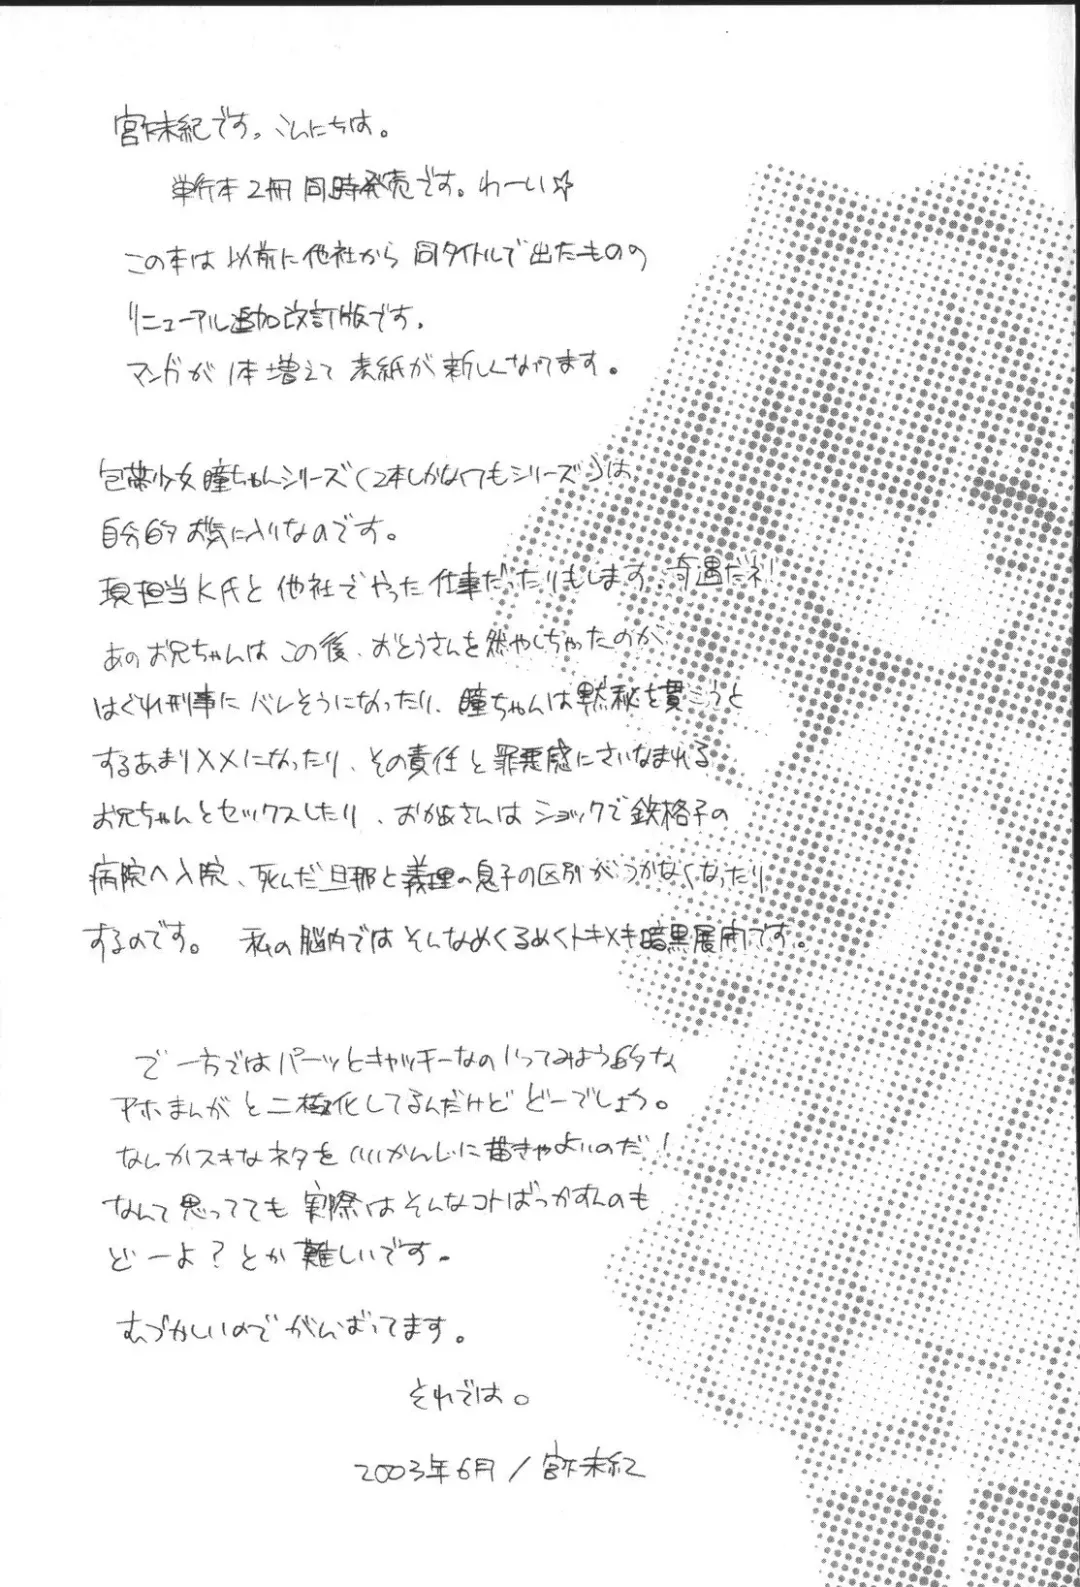 宮下未紀です。こんにちは。
単行本2冊同時発売です。わーい☆
この本は以前に他社から同タイトルで出たものの
リニューアル追加改訂版です。
マンガが1本増えて表紙が新しくなってます。
包帯少女瞳ちゃんシリーズ(2本しかなくてもシリーズ)は
自分的お気に入りなのです。
現担当K氏と他社でやった仕事だったりもします。奇遇だネ!
あのお兄ちゃんはこの後、おとうさんを燃やしちゃったのが
はぐれ刑事にバレそうになったり、瞳ちゃんは黙秘を貫こうと
するあまり××になったり、その責任と罪悪感にさいなまれる
おかあさんはショックで鉄格子の
病院へ入院、死んだ旦那と義理の息子の区別がつかなくなったり
するのです。 私の脳内ではそんなめくるめくトキメキ暗黒展開です。
で一方ではパーッとキャッチーなのいってみよう的な
アホまんがと二極化してるんだけどどーでしょう。
なんかスキなネタをいいかんじに描きゃよいのだ!
なんて思ってても実際はそんなコトばっかすんのも
どーよ?とか難しいです。
むづかしいのでがんばってます。
それでは。
2003年6月/宮下未紀